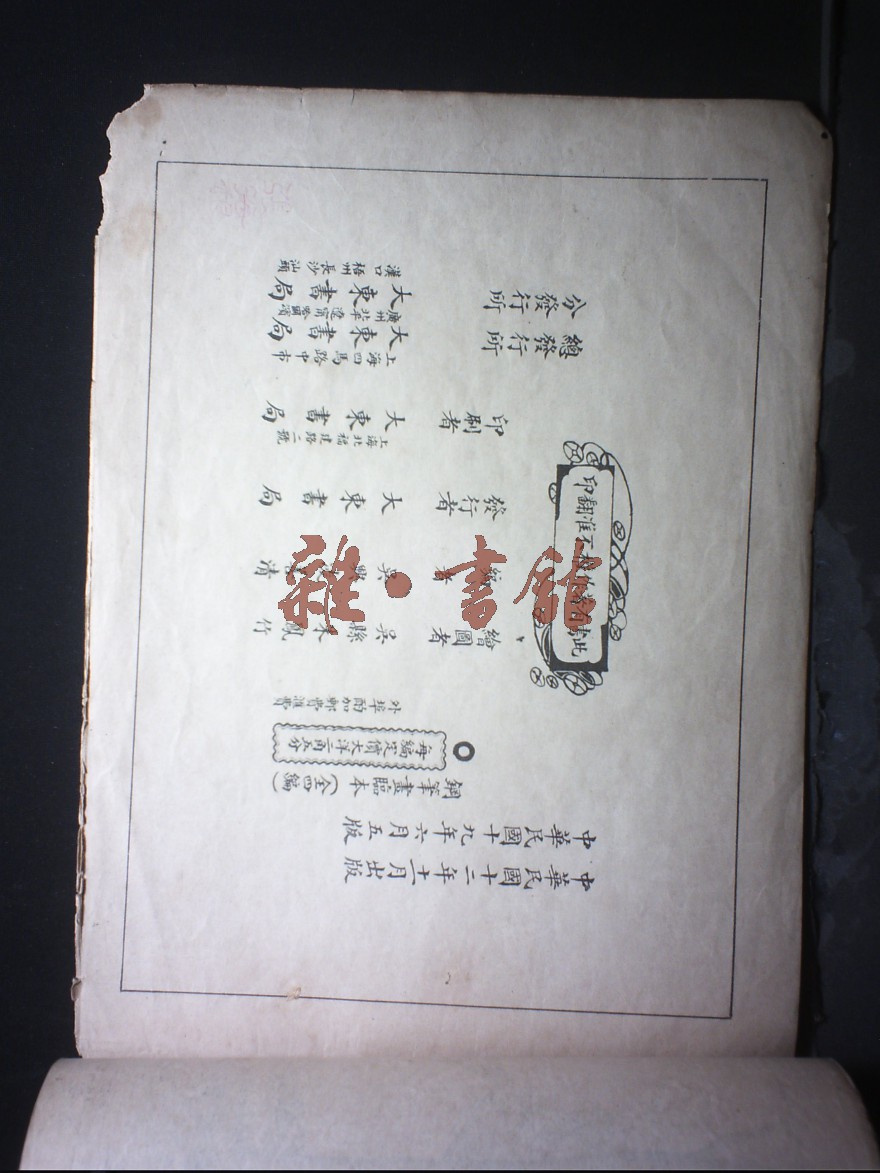 此書有著作權不准翻印
中華民國十二年十二月出版
中華民國十九年六月五版
鋼筆畫臨本(全四編)
每編定價大洋二角五分
外埠酌加郵費匯費
繪圖者 吳縣朱鳳竹
者 吳 清
發行者 大東書局
印刷者 大東書局
上海北福建路二號
總發行所 大東書局
上海四馬路中市
分發行所 大東書局
廣州 北平 遼甯 哈爾濱
漢口 梧州 長沙 汕頭
雜·書館